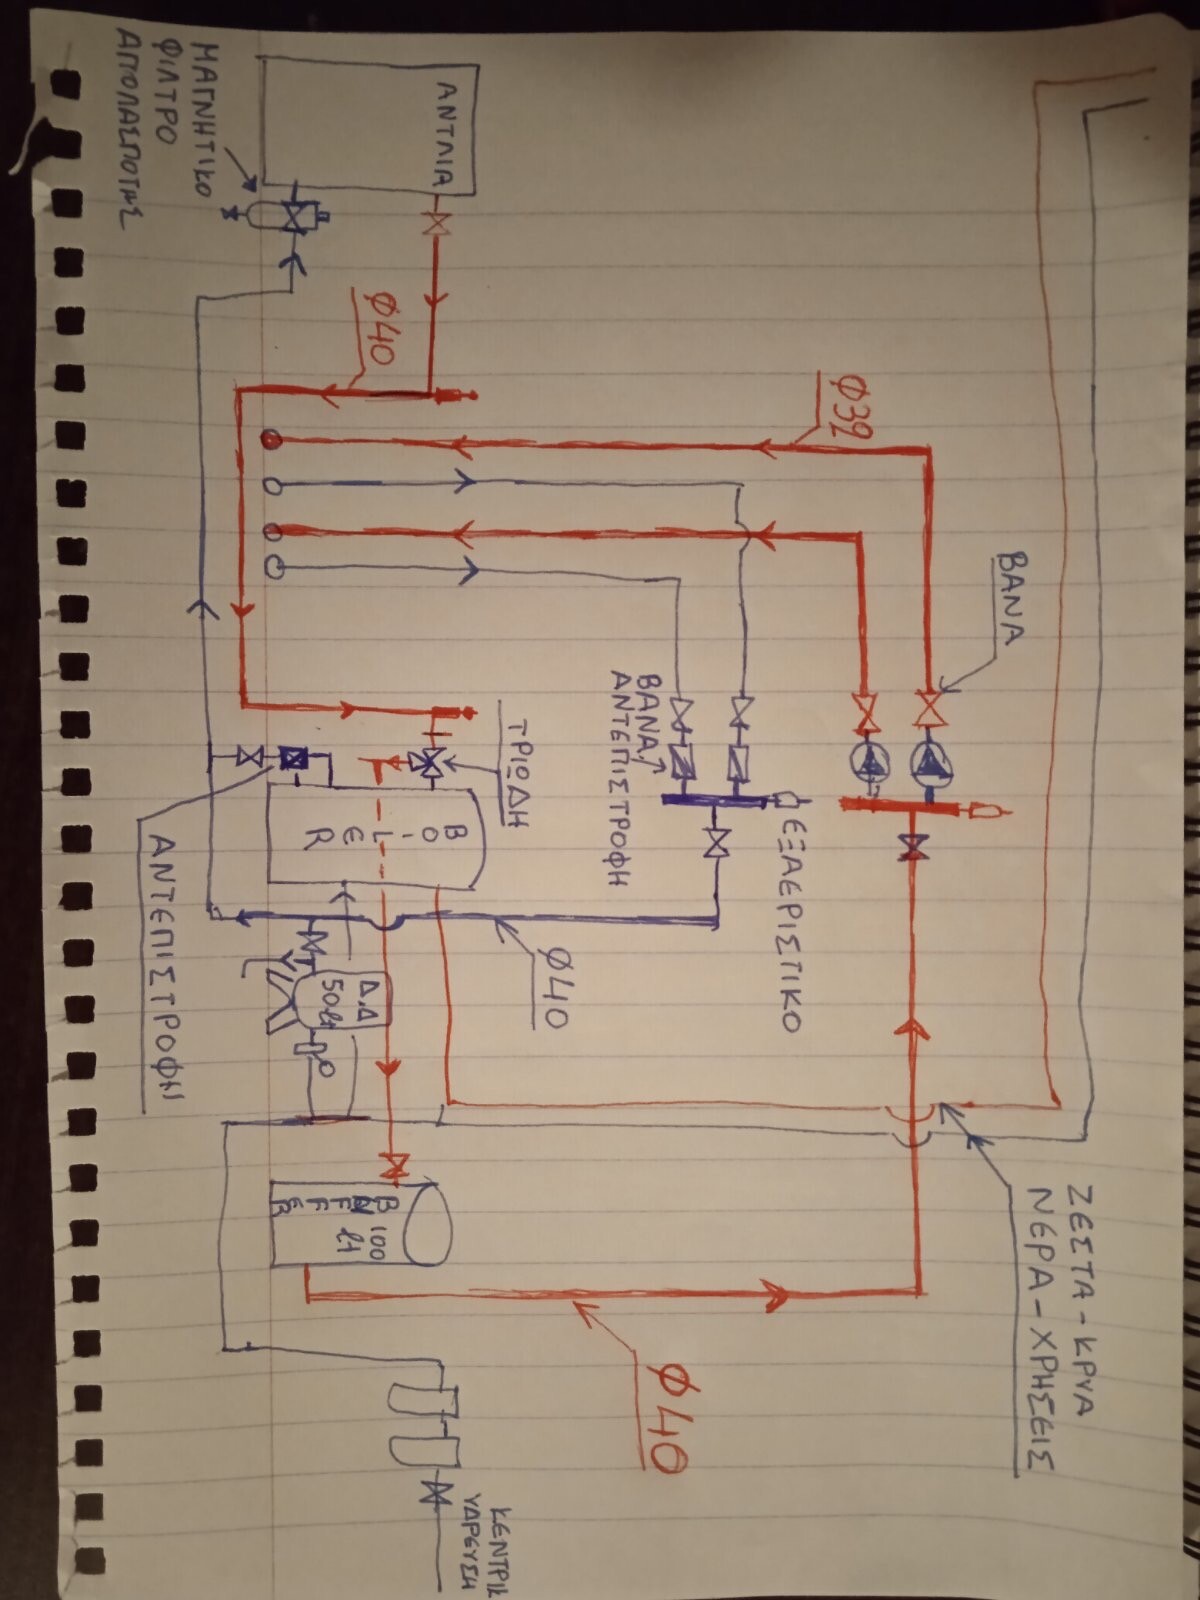 ΑΝΤΛΙΑ
ΜΑΓΝΗΤΙΚΟ
ΦΙΛΤΡΟ
ΑΠΟΛΑΣΠΟΤΗΣ
Φ40
Φ32
ΒΑΝΑ
ΤΡΙΟΔΗ
ΒΑΝΑ
ΑΝΤΕΠΙΣΤΡΟΦΗ
ΕΞΑΕΡΙΣΤΙΚΟ
BOILER
ΑΝΤΕΠΙΣΤΡΟΦΗ
Φ40
Δ.Δ
50lt
ΖΕΣΤΑ-ΚΡΥΑ
ΝΕΡΑ-ΧΡΗΣΕΙΣ
100
lt
Φ40
ΚΕΝΤΡΙΚ
ΥΔΡΕΥΣΗ